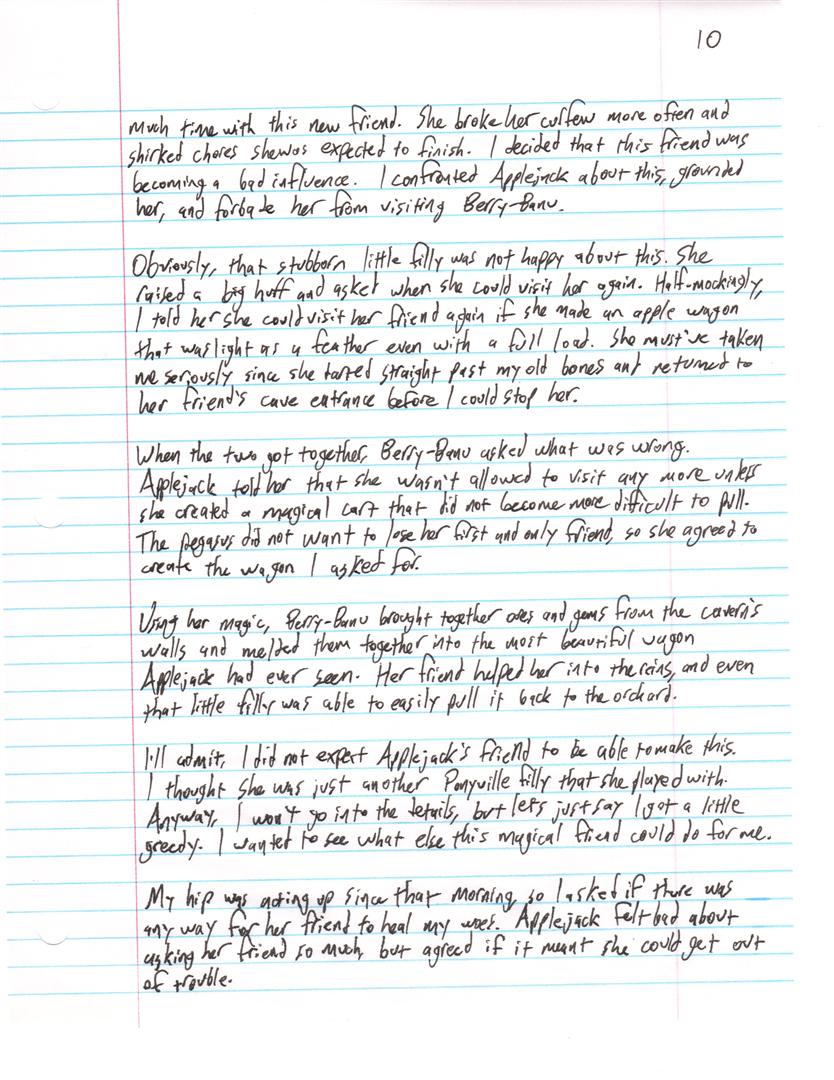 10
much time with this new friend. She broke her curfew more often and
shirked chores she was expected to finish. I decided that this friend was
becoming a bad influence. I confronted Applejack about this, grounded
her, and forbade her from visiting Berry-Banu.
Obviously, that stubborn little filly was not happy about this. She
raised a big huff and asked when she could visit her again. Half-mockingly,
I told her she could visit her friend again if she made an apple wagon
that was light as a feather even with a full load. She must've taken
me seriously, since she tarred straight past my old bones and returned to
her friend's cave entrance before I could stop her.
When the two got together, Berry-Banu asked what was wrong.
Applejack told her that she wasn't allowed to visit any more unless
she created a magical cart that did not become more difficult to pull.
The pegasus did not want to lose her first and only friend, so she agreed to
create the wagon I asked for.
Using her magic, Berry-Banu brought together ores and gems from the cavern's
walls and melded them together into the most beautiful wagon
Applejack had ever seen. Her friend helped her into the reins, and even
that little filly was able to easily pull it back to the orchard.
I'll admit, I did not expect Applejack's friend to be able to make this.
I thought she was just another Ponyville filly that she played with.
Anyway, I won't go into the details, but let's just say I got a little
greedy. I wanted to see what else this magical friend could do for me.
My hip was acting up since that morning, so I asked if there was
any way for her friend to heal my woes. Applejack felt bad about
asking her friend so much, but agreed if it meant she could get out
of trouble.